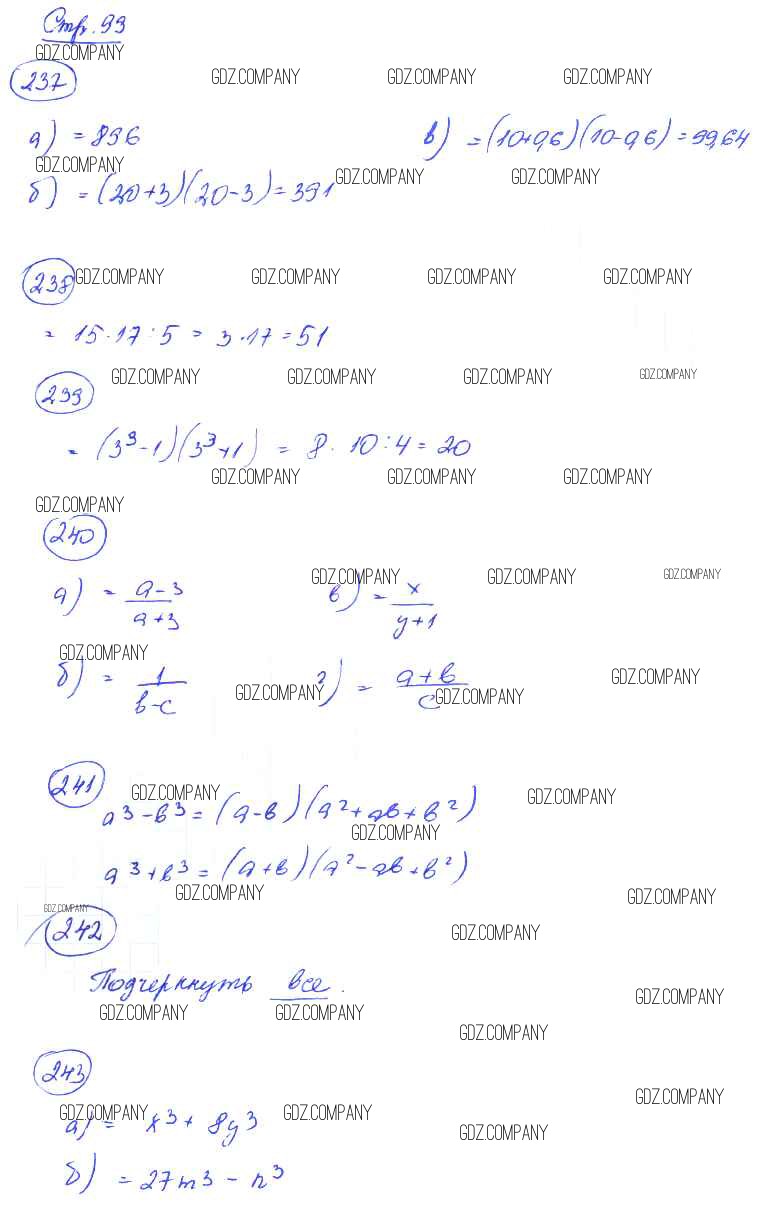 Стр. 99
GDZ.COMPANY
237 GDZ.COMPANY GDZ.COMPANY GDZ.COMPANY
а) = 896 в) = (10+0,6)(10-0,6) = 99,64
GDZ.COMPANY
GDZ.COMPANY GDZ.COMPANY
б) = (20+3)(20-3) = 391
238 GDZ.COMPANY GDZ.COMPANY GDZ.COMPANY GDZ.COMPANY
= 15·17:5 = 3·17 = 51
239 GDZ.COMPANY GDZ.COMPANY GDZ.COMPANY GDZ.COMPANY
= (3³-1)(3³+1) = 8·10:4 = 20
GDZ.COMPANY GDZ.COMPANY GDZ.COMPANY
GDZ.COMPANY
240
GDZ.COMPANY GDZ.COMPANY GDZ.COMPANY
а) = (a-3)/(a+3) в) = x/(y+1)
GDZ.COMPANY GDZ.COMPANY
б) = 1/(b-c) г) = (a+b)/c
GDZ.COMPANY GDZ.COMPANY
241 GDZ.COMPANY GDZ.COMPANY
a³-b³ = (a-b)(a²+ab+b²)
GDZ.COMPANY
a³+b³ = (a+b)(a²-ab+b²)
GDZ.COMPANY GDZ.COMPANY
GDZ.COMPANY
242 GDZ.COMPANY
Подчеркнуть все.
GDZ.COMPANY
GDZ.COMPANY GDZ.COMPANY
GDZ.COMPANY
243
GDZ.COMPANY
GDZ.COMPANY GDZ.COMPANY
а) = x³ + 8y³
GDZ.COMPANY
б) = 27m³ - n³